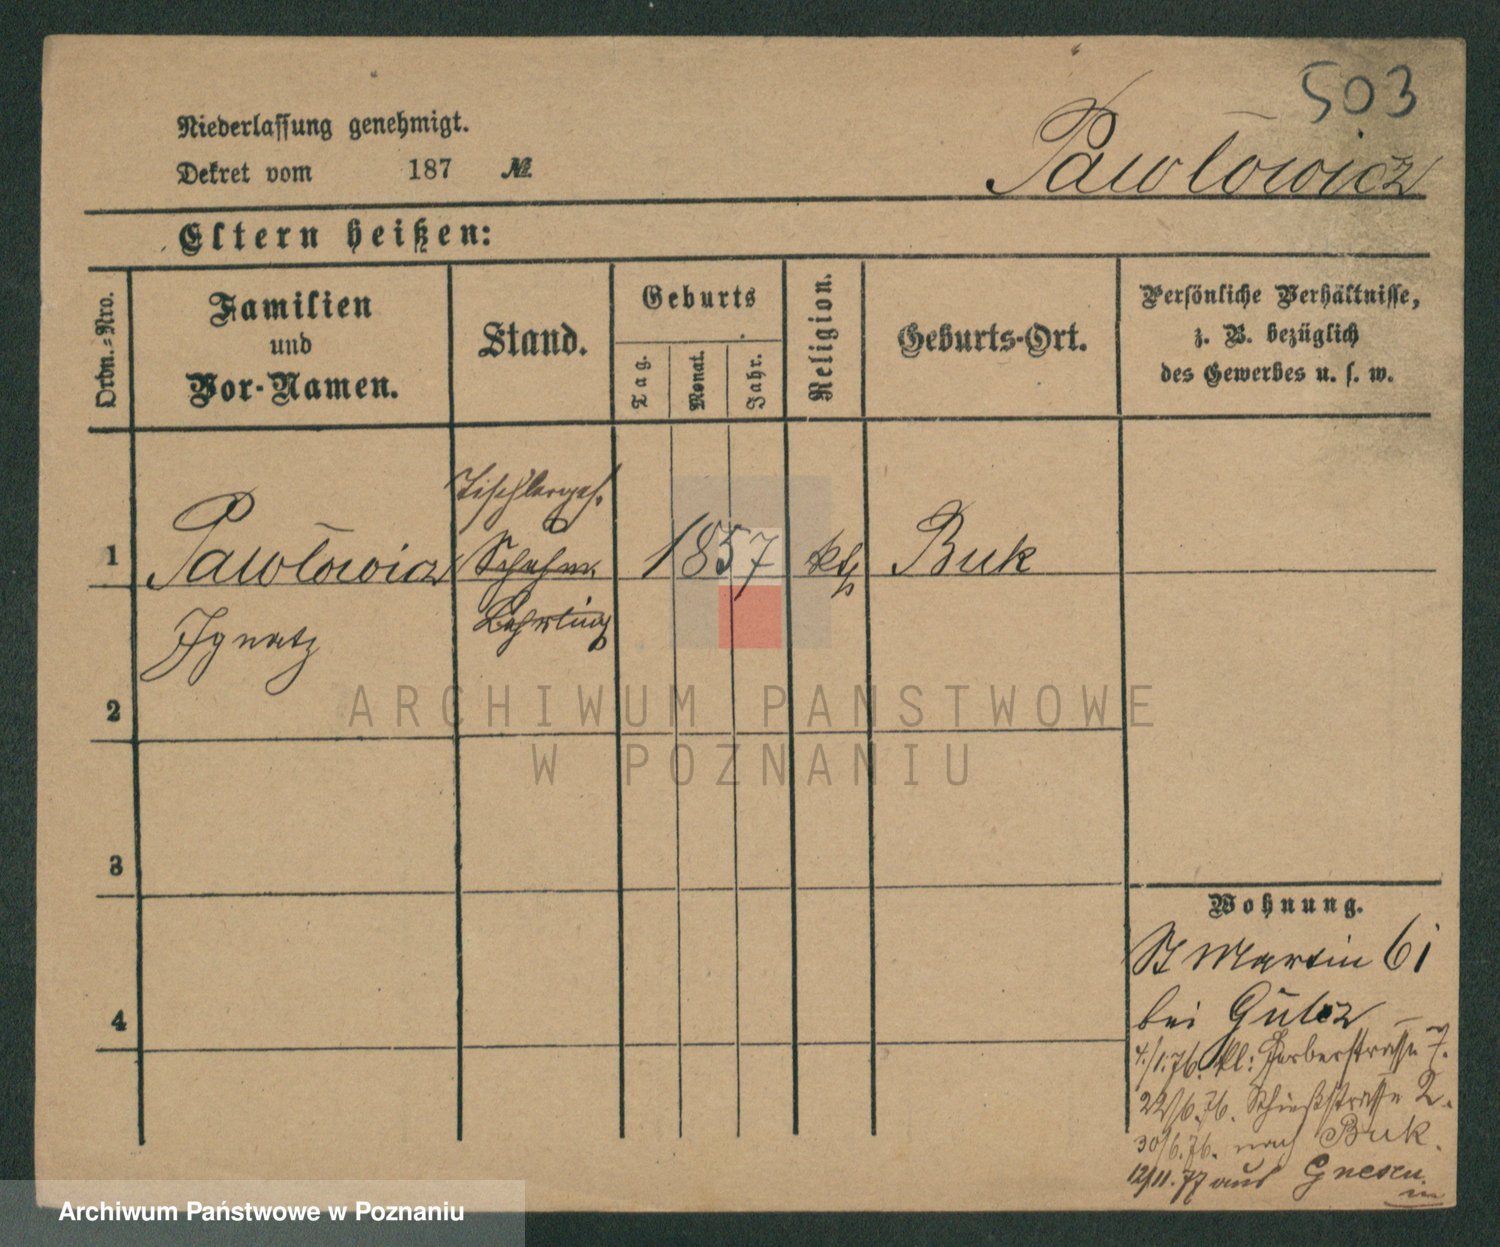 503
Niederlassung genehmigt.
Dekret vom 187 №
Pawłowicz
Eltern heißen:
Ordn.-Nro.
Familien
und
Vor-Namen.
Stand.
Geburts
Tag.
Monat.
Jahr.
Religion.
Geburts-Ort.
Persönliche Verhältnisse,
z. B. bezüglich
des Gewerbes u. s. w.
Tischlerges.
1 Pawłowicz 1857 kth Buk
Ignatz
Lehrling
2
3
4
Wohnung.
St Martin 61
bei Gulcz
4./1.76. kl: Gerberstrasse 7.
22/6.76. Schießstrasse 2.
30/6.76. nach Buk.
12/11.77 aus Gnesen
ARCHIWUM PAŃSTWOWE
W POZNANIU
Archiwum Państwowe w Poznaniu